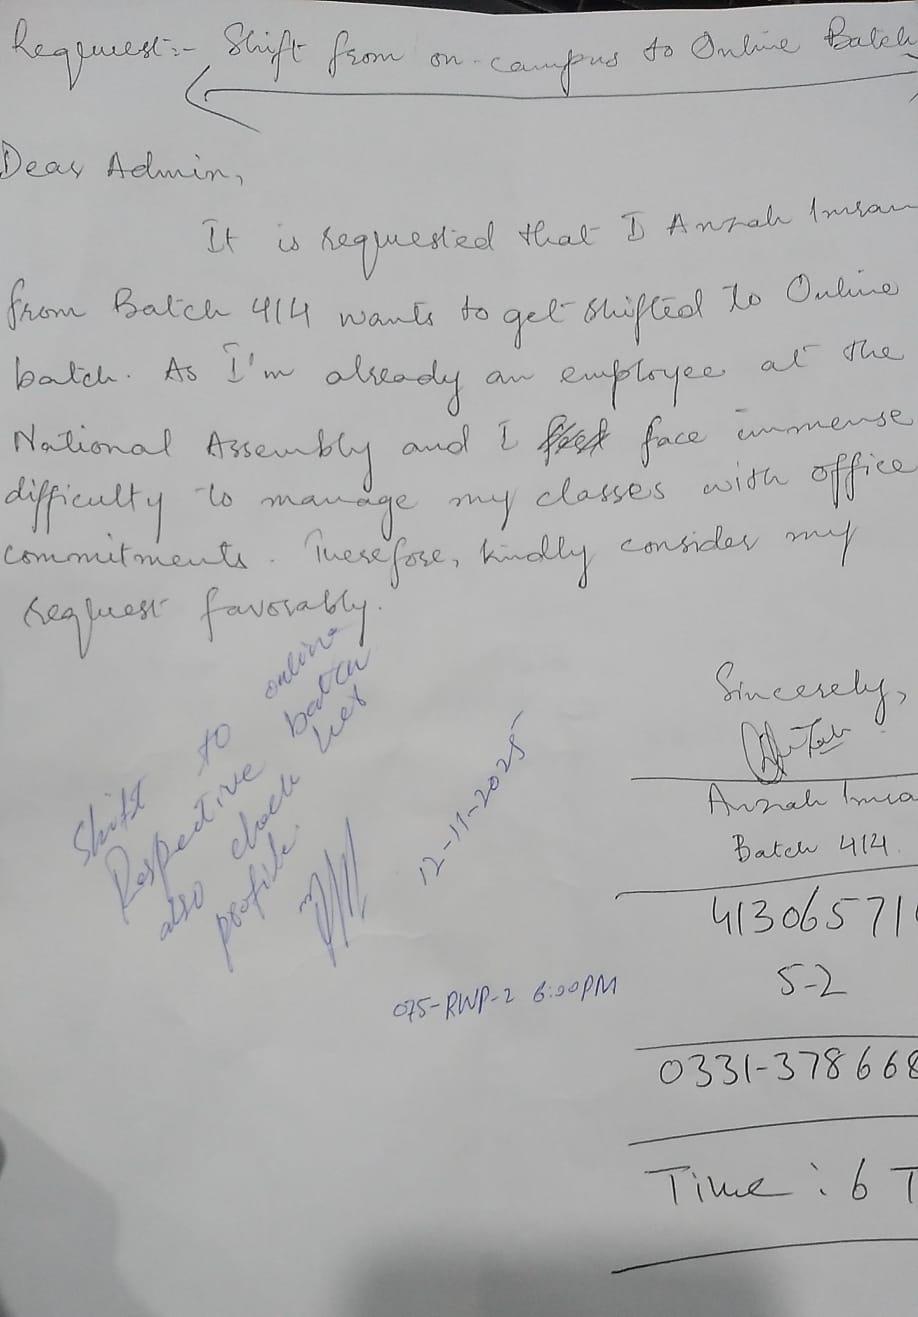 Request:- Shift from on-campus to Online Batch
Dear Admin,
It is requested that I Anzah Imran
from Batch 414 wants to get shifted to Online
batch. As I'm already an employee at the
National Assembly and I face immense
difficulty to manage my classes with office
commitments. Therefore, kindly consider my
request favorably.
Sincerely,
Anzah Imra
Batch 414.
41306571
5-2
0331-378668
Time : 6 T
Shift to online
Respective batch
also check her
profile.
12-11-2025
075-RWP-2 6:00PM